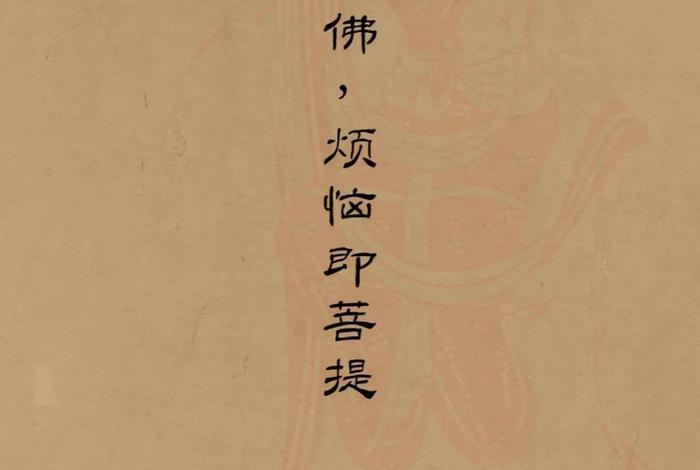 佛，烦恼即菩提